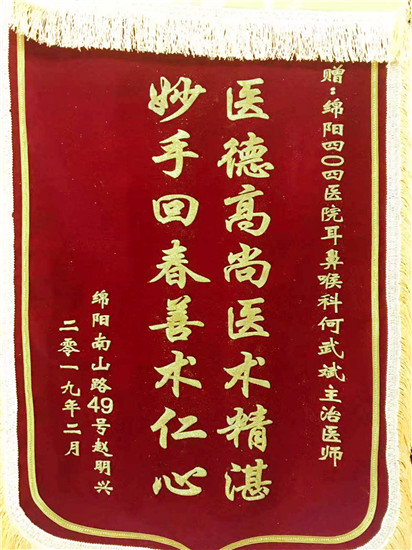 赠:绵阳四〇四医院耳鼻喉科何武斌主治医师
医德高尚医术精湛
妙手回春善术仁心
绵阳南山路49号赵明兴
二零一九年二月